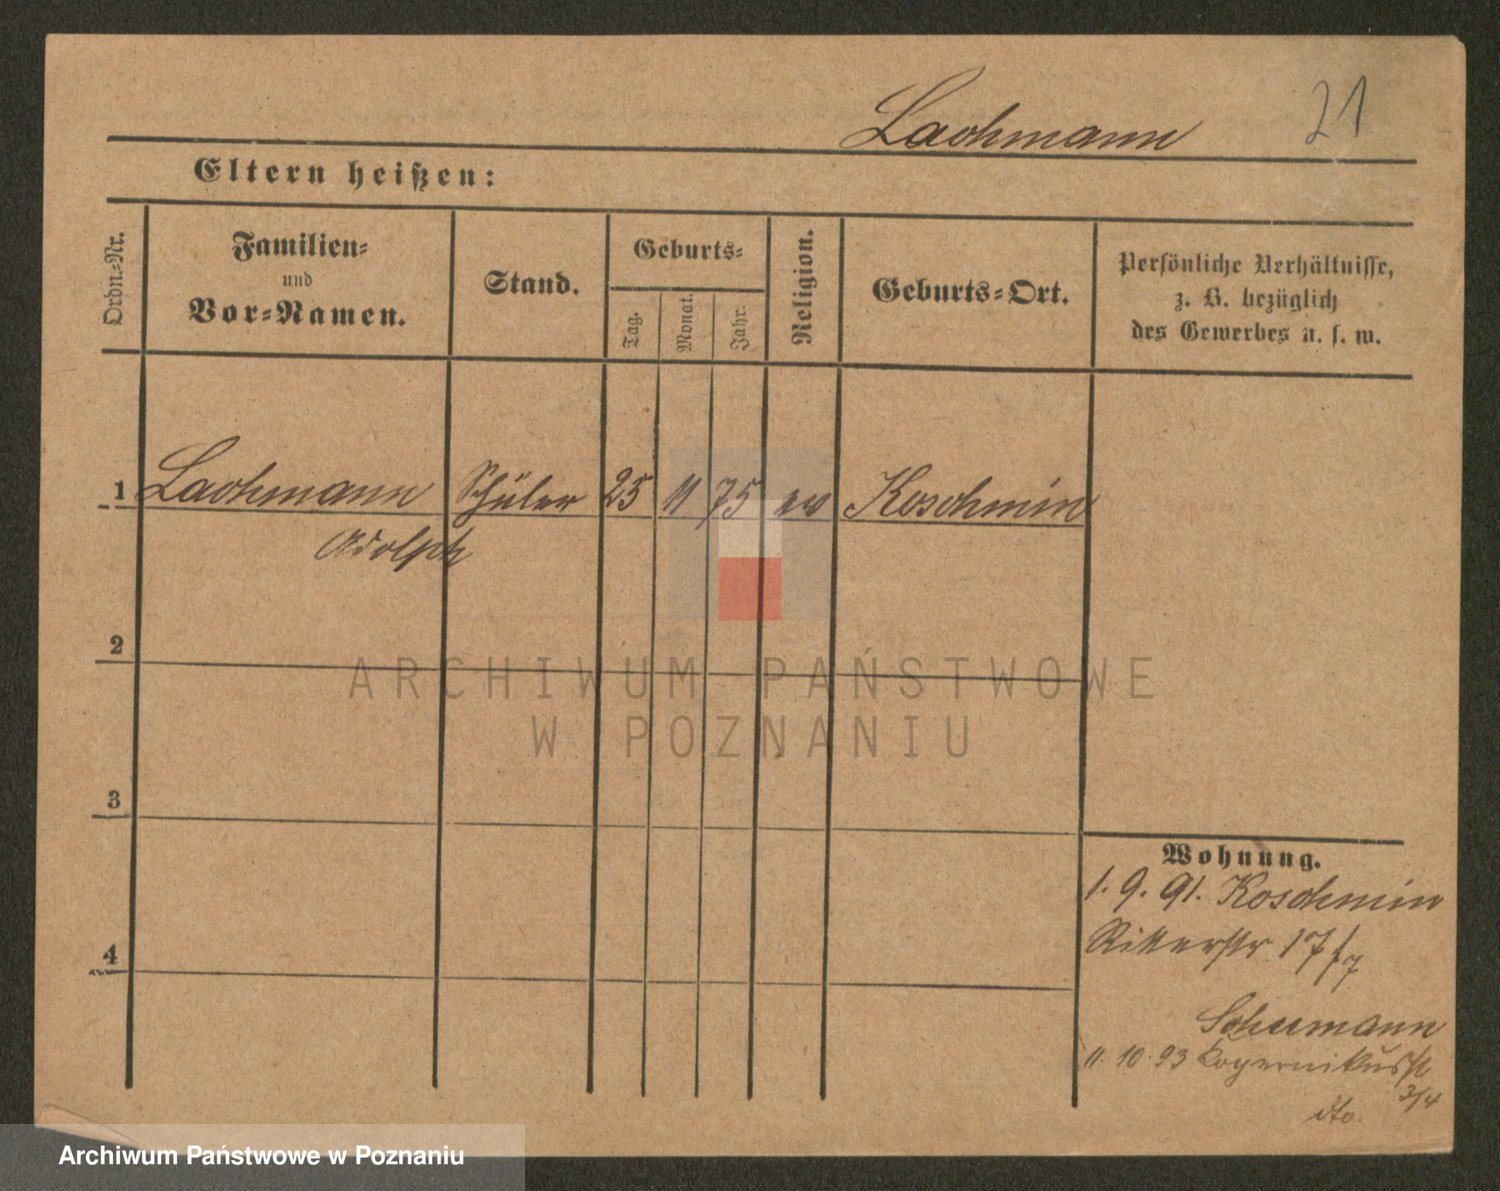 Lachmann 21
Eltern heißen:
Ordn.-Nr.
Familien-
und
Vor-Namen.
Stand.
Geburts-
Tag.
Monat.
Jahr.
Religion.
Geburts-Ort.
Persönliche Verhältnisse,
z. B. bezüglich
des Gewerbes u. s. w.
1 Lachmann Schüler 25 11 75 ev Koschmin
Adolph
2
3
4
Wohnung.
1. 9. 91. Koschmin
Ritterstr 17/7
Schumann
11. 10. 93 Kopernikusst
3/4
dto.
ARCHIWUM PAŃSTWOWE
W POZNANIU
Archiwum Państwowe w Poznaniu